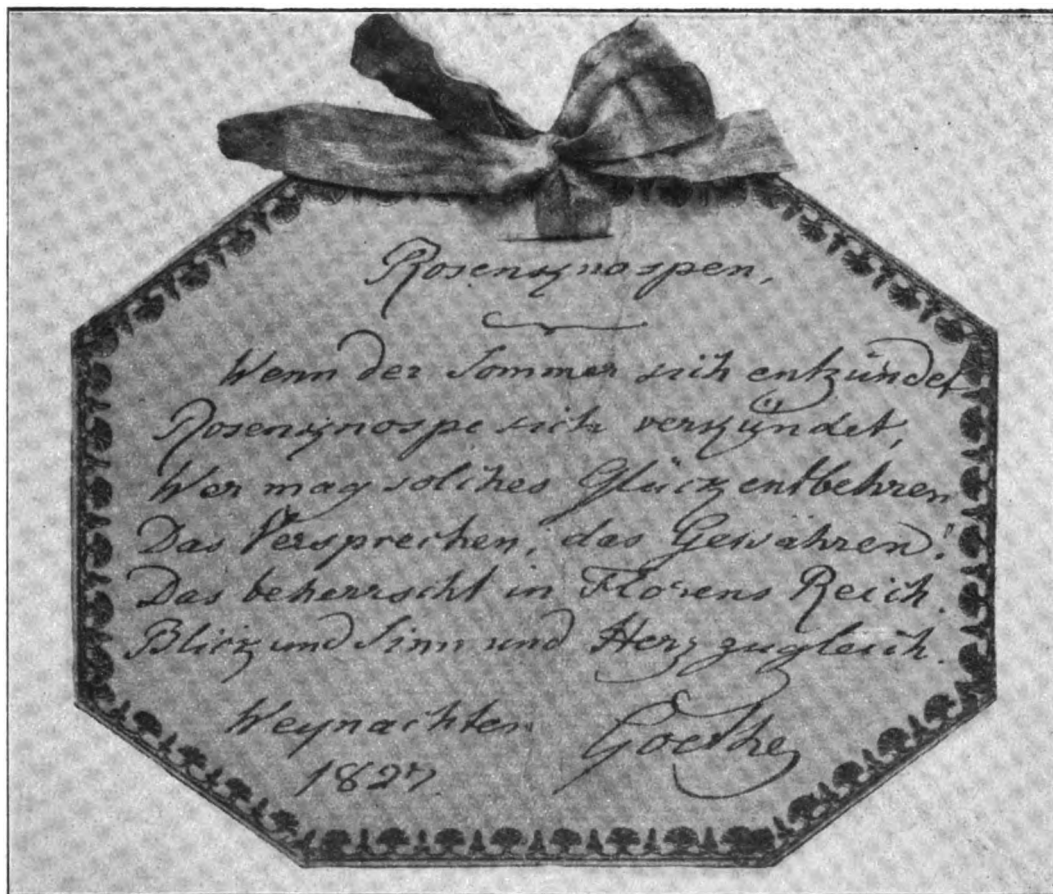 Rosenknospen,
Wenn der Sommer sich entzündet
Rosenknospe sich verkündet,
Wer mag solches Glück entbehren
Das Versprechen, das Gewähren!
Das beherrscht in Florens Reich.
Blick und Sinn und Herz zugleich.
Weynachten Goethe
1827